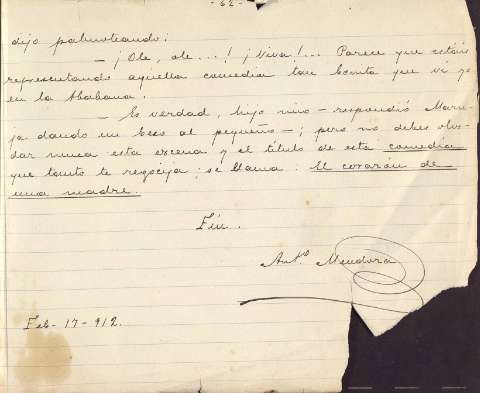 - 62 -
dijo palmoteando:
— ¡Ole, ole...! ¡Viva!... Parece que estáis
representando aquella comedia tan bonita que vi yo
en la Habana.
— Es verdad, hijo mio — respondió Maru-
ja dando un beso al pequeño —; pero no debes olvi-
dar nunca esta escena y el título de esta comedia
que tanto te regocija; se llama: El corazón de
una madre.
Fin.
Antº Mendoza
Feb-17-912.